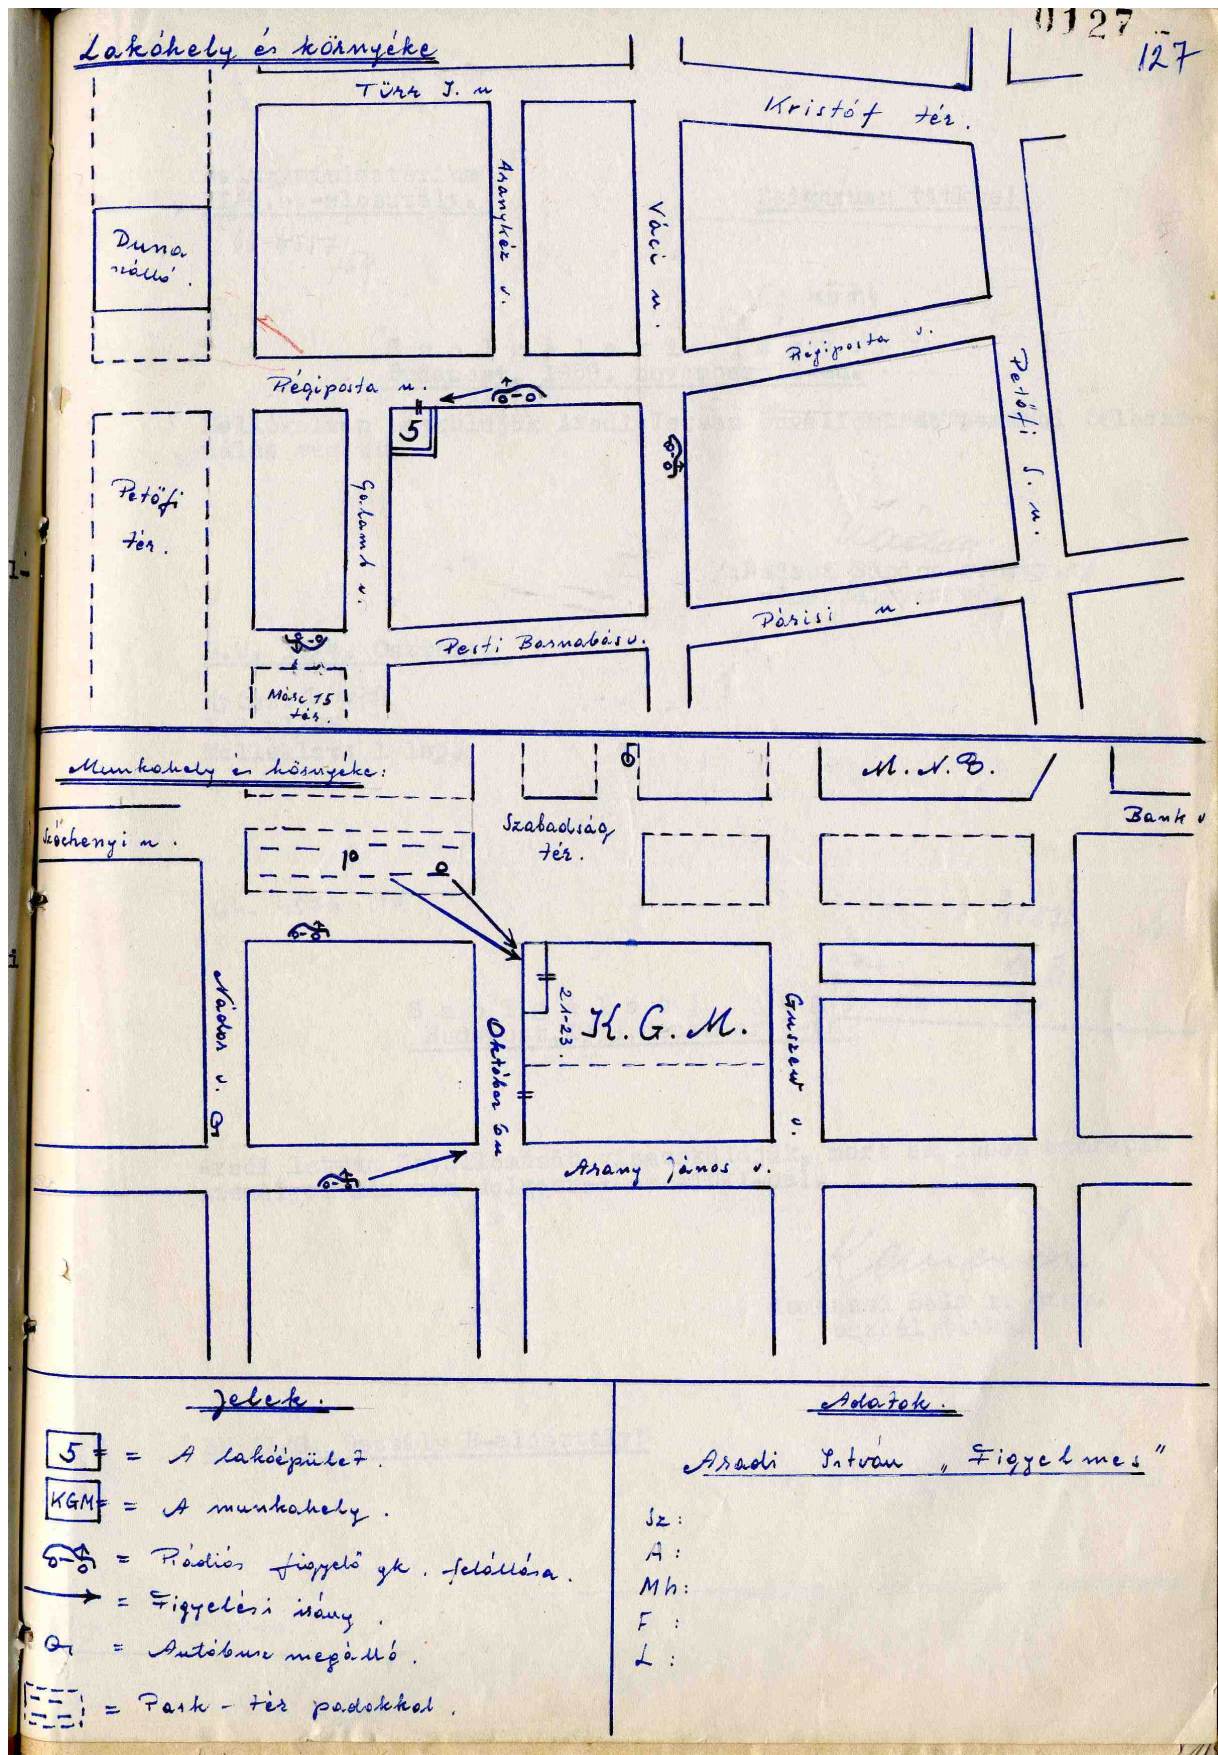 0127
127
Lakóhely és környéke
Türr I. u
Kristóf tér.
Aranykéz u.
Váci u.
Duna
szálló.
Régiposta u.
Régiposta u.
Petőfi S. u.
5
Petőfi
tér.
Galamb u.
Pesti Barnabás u.
Párisi u.
Márc 15
tér.
Munkahely és környéke:
M.N.B.
Széchenyi u.
Szabadság
tér.
Bank u
Nádor u.
Október 6 u
21-23.
K.G.M.
Guszev u.
Arany János u.
Jelek.
5 = A lakóépület.
KGM = A munkahely.
= Rádiós figyelő gk. felállása.
= Figyelési irány.
= Autóbusz megálló.
= Park - tér padokkal.
Adatok.
Aradi István „Figyelmes"
Sz:
A:
Mh:
F :
L :